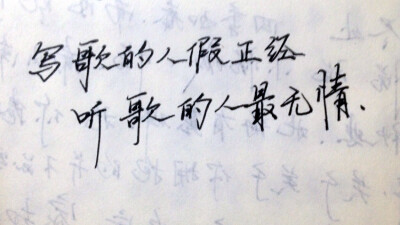 写歌的人假正经
听歌的人最无情.